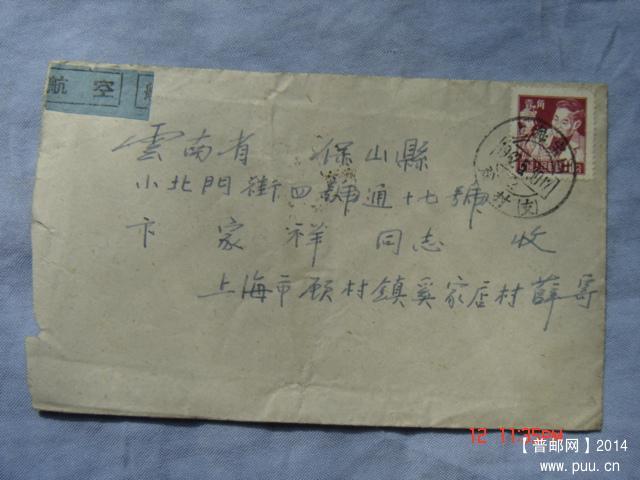 航空
雲南省 保山縣
小北門街四號通十七號
卞家祥 同志 收
上海市顾村鎮奚家店村薛寄
壹角
村(支)
12 11:35PM
【普邮网】2014
www.puu.cn